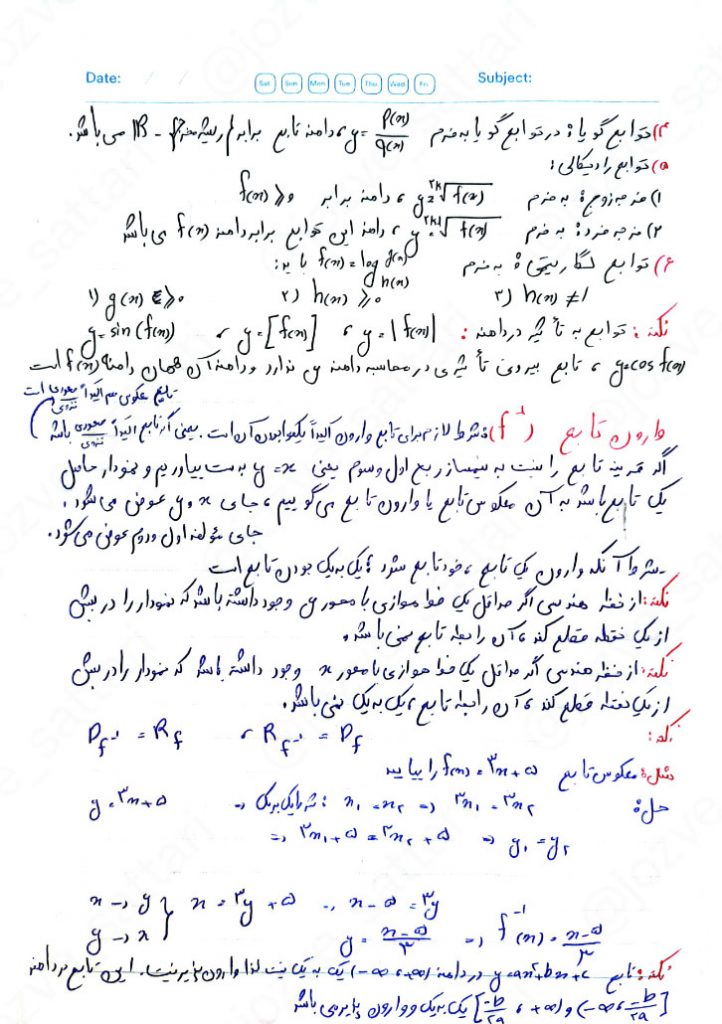 Date: / / Sat Sun Mon Tue Thu Wed Fri Subject:
۴) توابع گویا: در توابع گویا به فرم y = p(x)/q(x) ، دامنه تابع برابر {ریشه مخرج} - R می باشد.
۵) توابع رادیکالی:
۱) فرجه زوج: به فرم y = ²ᵏ√f(x) ، دامنه برابر f(x) ≥ 0
۲) فرجه فرد: به فرم y = ²ᵏ⁺¹√f(x) ، دامنه این توابع برابر دامنه f(x) می باشد
۶) توابع لگاریتمی: به فرم f(x) = log g(x) h(x) باید:
۱) g(x) > 0 ۲) h(x) > 0 ۳) h(x) ≠ 1
نکته: توابع بی تأثیر در دامنه: y = |f(x)| ، y = [f(x)] ، y = sin(f(x))
y = cos f(x) ، تابع بیرونی تأثیری در محاسبه دامنه y ندارد و دامنه آن همان دامنه f(x) است
تابع عکوس هم اکیداً صعودی/نزولی است
وارون تابع (f⁻¹): شرط لازم برای تابع وارون اکیداً یکنوا بودن آن است. یعنی اگر تابع اکیداً صعودی/نزولی باشد
اگه قرینه تابع را نسبت به نیمساز ربع اول و سوم یعنی y = x بدست بیاوریم و نمودار حاصل
یک تابع باشد به آن معکوس تابع یا وارون تابع می گوییم ، جای x و y عوض می شود.
جای مؤلفه اول و دوم عوض می شود.
ـ شرط آنکه وارون یک تابع ، خود تابع شود : یک به یک بودن تابع است
نکته: از نقطه هندسی اگر حداقل یک خط موازی با محور y وجود داشته باشد که نمودار را در بیش
از یک نقطه قطع کند ، آن رابطه تابع نمی باشد.
نکته: از نقطه هندسی اگه حداقل یک خط موازی با محور x وجود داشته باشد که نمودار را در بیش
از یک نقطه قطع کند ، آن رابطه تابع ، یک به یک نمی باشد.
نکته: D_f⁻¹ = R_f ، R_f⁻¹ = D_f
مثال: معکوس تابع f(x) = ۳x + ۵ را بیابید
حل: y = ۳x + ۵ ⇒ شرط یک به یک : x₁ = x₂ ⇒ ۳x₁ = ۳x₂
⇒ ۳x₁ + ۵ = ۳x₂ + ۵ ⇒ y₁ = y₂
x → y } x = ۳y + ۵ ⇒ x - ۵ = ۳y
y → x } y = (x-۵)/۳ ⇒ f⁻¹(x) = (x-۵)/۳
نکته: تابع y = ax² + bx + c در دامنه (-∞ ، +∞) یک به یک نیست لذا وارون پذیر نیست. این تابع در دامنه
[-b/۲a ، +∞) و (-∞ ، -b/۲a] یک به یک و وارون پذیر می باشد